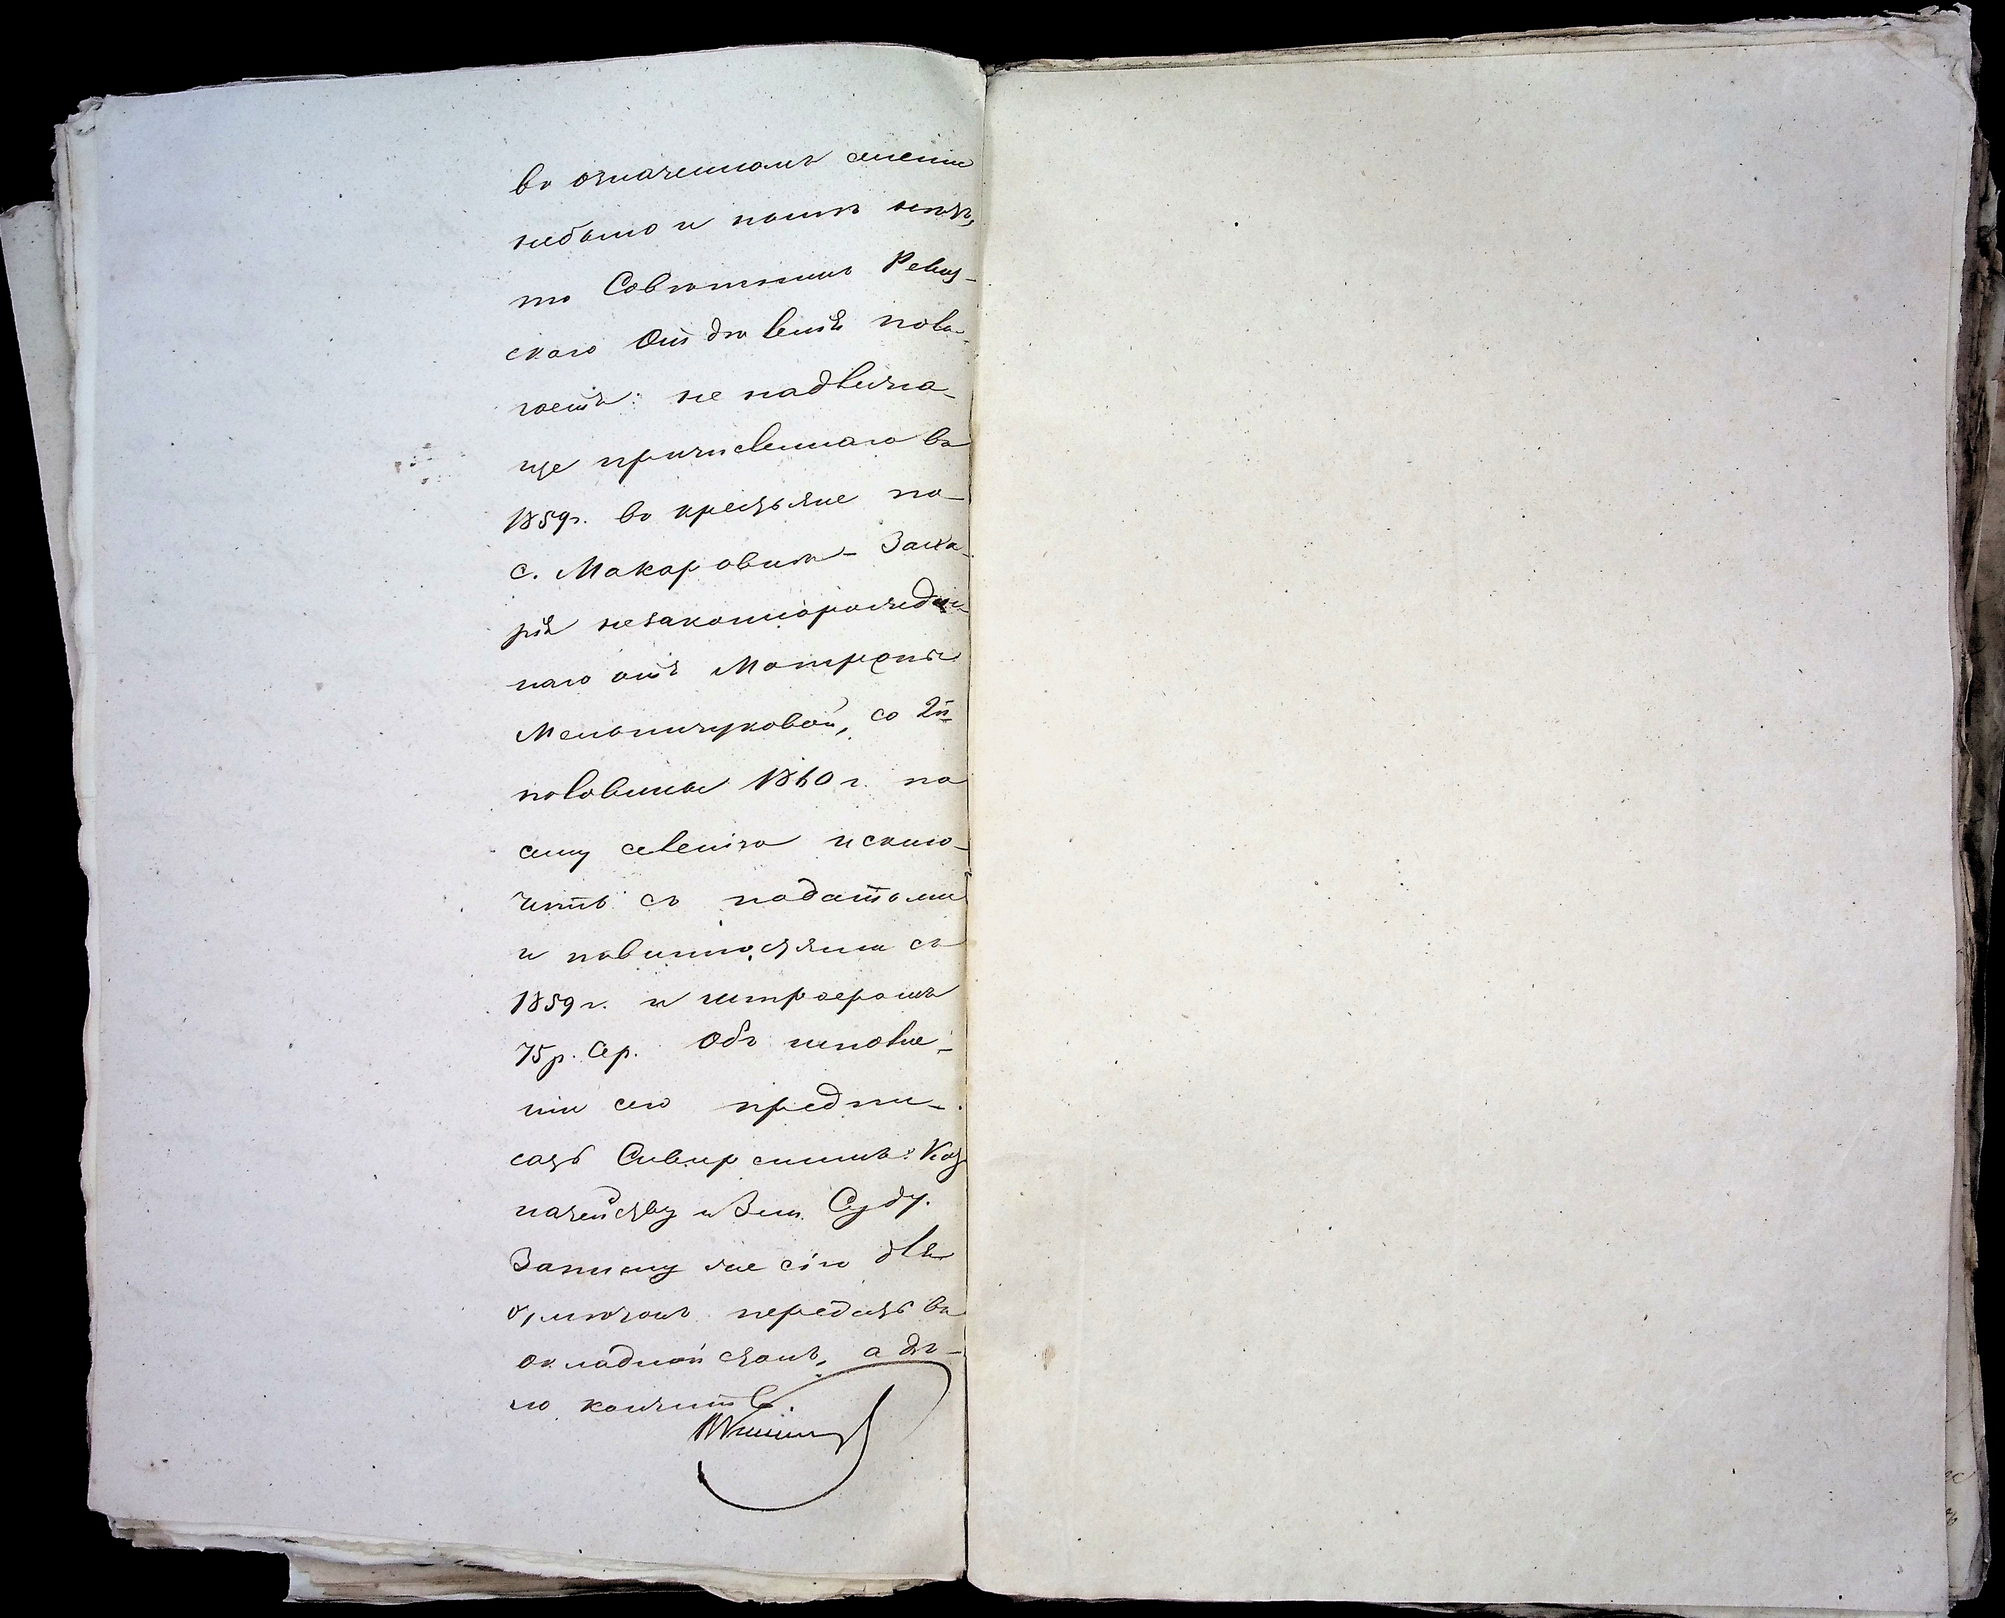 въ означенномъ имении
небыло и нынѣ нѣтъ,
то Совѣтникъ Ревиз-
скаго Отдѣленія пола-
гаетъ: не надлежа-
ще причисленнаго въ
1859г. въ крестьяне по
с. Макаровичи Заха-
рія незаконнорожден-
наго отъ Матрены
Мельничуковой, со 2й
половины 1860 г. по
сему селенію исклю-
чить съ податьми
и повинностями съ
1859 г. и штрафомъ
75 р. сер. Объ исполне-
ніи сего предпи-
сать Каз
начейству и Зем. Суду.
Записку же сію для
отмѣтокъ передать въ
окладной столъ, а дѣ-
ло кончить.